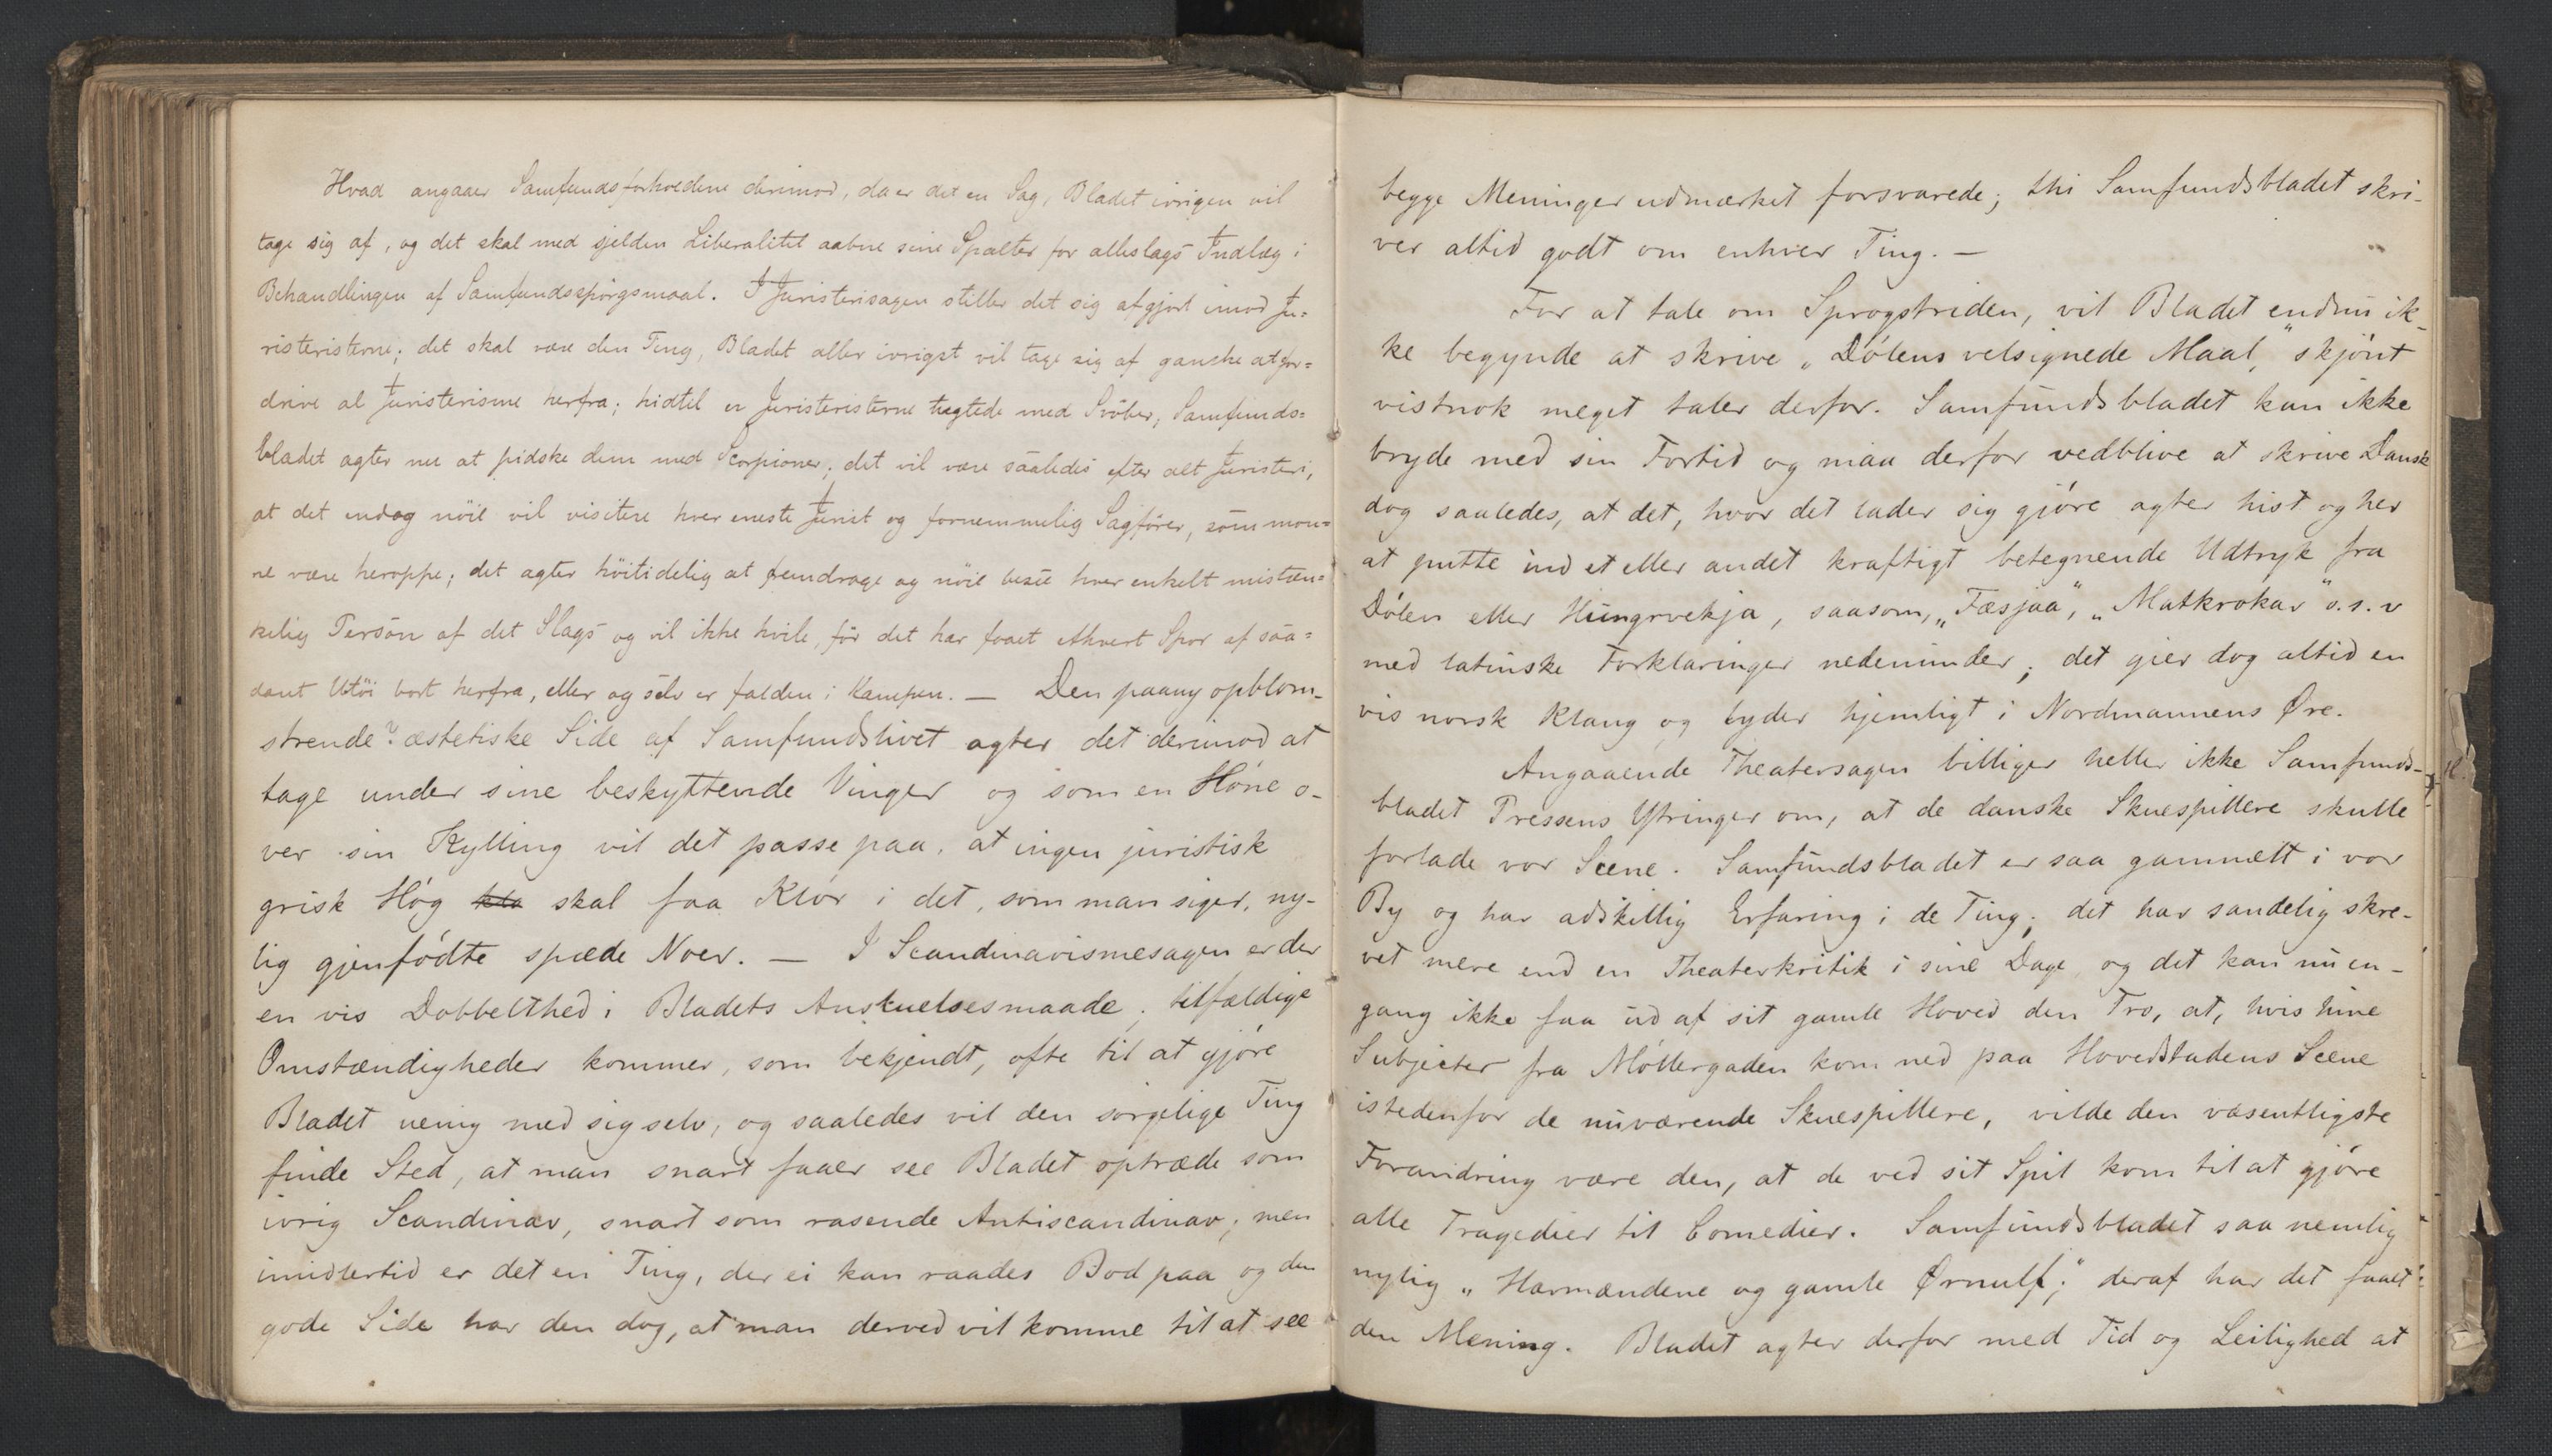 Hvad angaaer Samfundsforholdene derimod, da er det en Sag, Bladet ivrigen vil
tage sig af, og det skal med sjelden Liberalitet aabne sine Spalter for alleslags Indlæg i
Behandlingen af Samfundsspörgsmaal. I Juristerisagen stiller det sig afgjort imod Ju=
risteristerne; det skal være den Ting, Bladet aller ivrigst vil tage sig af ganske at for=
drive al Juristerisme herfra; hidtil er Juristeristerne tugtede med Svöber, Samfunds=
bladet agter nu at pidske dem med Scorpioner; det vil være saaledes efter alt Juristeri,
at det endog nöie vil visitere hver eneste Jurist og fornemmelig Sagförer, som mon=
ne være heroppe; det agter höitidelig at fremdrage og nöie besee hver enkelt mistæn=
kelig Person af det Slags og vil ikke hvile, för det har faaet ethvert Spor af saa=
dant Utöi bort herfra, eller og selv er falden i Kampen. — Den paany opblom-
strende? æstetiske Side af Samfundslivet agter det derimod at
tage under sine beskyttende Vinger og som en Höne o-
ver sin Kylling vil det passe paa, at ingen juristisk
grisk Hög kla skal faa Klör i det, som man siger, ny-
lig gjenfödte spæde Noer. — I Scandinavismesagen er der
en vis Dobbelthed i Bladets Anskuelsesmaade; tilfældige
Omstændigheder kommer, som bekjendt, ofte til at gjöre
Bladet uenig med sig selv, og saaledes vil den sörgelige Ting
finde Sted, at man snart faaer see Bladet optræde som
ivrig Scandinav, snart som rasende Antiscandinav; men
imidlertid er det en Ting, der ei kan raades Bod paa og den
gode Side har den dog, at man derved vil komme til at see
begge Meninger udmærket forsvarede; thi Samfundsbladet skri-
ver altid godt om enhver Ting. —
For at tale om Sprogstriden, vil Bladet endnu ik-
ke begynde at skrive „Dölens velsignede Maal," skjönt
vistnok meget taler derfor. Samfundsbladet kan ikke
bryde med sin Fortid og maa derfor vedblive at skrive Dansk
dog saaledes, at det, hvor det lader sig gjöre agter hist og her
at putte ind et eller andet kraftigt betegnende Udtryk fra
Dölen eller Hungrvekja, saasom, „Fæsjaa", „Matkrokar" o.s.v
med latinske Forklaringer nedenunder; det gier dog altid en
vis norsk Klang og lyder hjemligt i Nordmannens Øre.
Angaaende Theatersagen billiger heller ikke Samfunds-
bladet Pressens Yttringer om, at de danske Skuespillere skulle
forlade vor Scene. Samfundsbladet er saa gammelt i vor
By og har adskillig Erfaring i de Ting; det har sandelig skre-
vet mere end en Theaterkritik i sine Dage, og det kan nu en-
gang ikke faa ud af sit gamle Hoved den Tro, at, hvis hine
Subjecter fra Möllergaden kom ned paa Hovedstadens Scene
istedenfor de nuværende Skuespillere, vilde den væsentligste
Forandring være den, at de ved sit Spil kom til at gjöre
alle Tragedier til Comedier. Samfundsbladet saa nemlig
nylig „Hærmændene og gamle Ørnulf;" deraf har det faaet
den Mening. Bladet agter derfor med Tid og Leilighed at